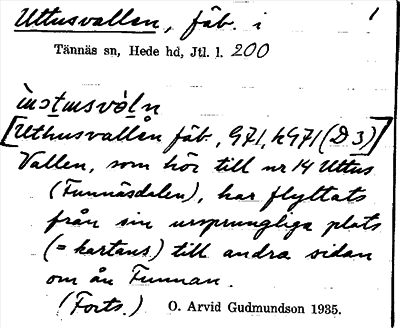 Uttusvallen, fäb. i 1
Tännäs sn, Hede hd, Jtl. l. 200
[Uthusvallen fäb., G71, kG71 (D3)]
Vallen, som hör till nr 14 Uttus
(Funnäsdalen), har flyttats
från sin ursprungliga plats
(= kartans) till andra sidan
om ån Funnan.
(Forts.) O. Arvid Gudmundson 1935.